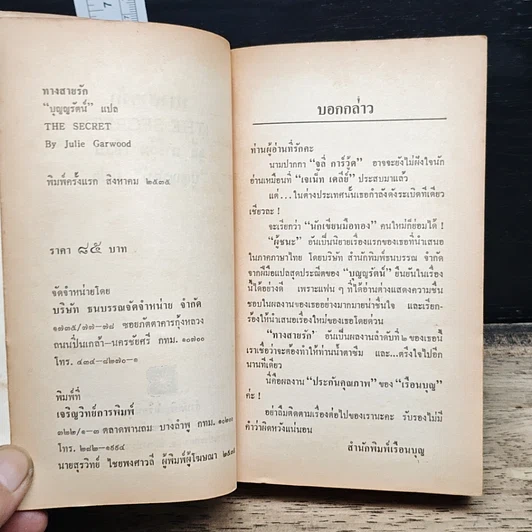 ทางสายรัก
“บุญญรัตน์” แปล
THE SECRET
By Julie Garwood
พิมพ์ครั้งแรก สิงหาคม ๒๕๓๕
ราคา ๘๕ บาท
จัดจำหน่ายโดย
บริษัท ธนบรรณจัดจำหน่าย จำกัด
๑๗๓๕/๗๗-๗๘ ซอยภัตตาคารกุ้งหลวง
ถนนปิ่นเกล้า-นครชัยศรี กทม. ๑๐๗๐๐
โทร. ๔๓๔-๔๒๗๐-๑
พิมพ์ที่
เจริญวิทย์การพิมพ์
๓๒๒/๑-๓ ตลาดพานถม บางลำพู กทม. ๑๐๒๐๐
โทร. ๒๘๒-๑๙๙๔
นายสุรวิทย์ ไชยพงศาวลี ผู้พิมพ์ผู้โฆษณา
บอกกล่าว
ท่านผู้อ่านที่รักคะ
นามปากกา “จูลี่ การ์วู้ด” อาจจะยังไม่ฝังใจนัก
อ่านเหมือนที่ “เจเน็ท เดลีย์” ประสบมาแล้ว
แต่...ในต่างประเทศนั้นเธอกำลังดังระเบิดทีเดียว
เชียวละ !
จะเรียกว่า “นักเขียนมือทอง” คนใหม่ก็ย่อมได้ !
“ผู้ชนะ” อันเป็นนิยายเรื่องแรกของเธอที่นำเสนอ
ในภาคภาษาไทย โดยบริษัท สำนักพิมพ์ธนบรรณ จำกัด
จากฝีมือแปลสุดประณีตของ “บุญญรัตน์” ยืนยันในเรื่อง
นี้ได้อย่างดี เพราะแฟน ๆ ที่ได้อ่านต่างแสดงความชื่น
ชอบในผลงานของเธออย่างมากมายน่าชื่นใจ และเรียก-
ร้องให้นำเสนอเรื่องใหม่ของเธอโดยด่วน
“ทางสายรัก” อันเป็นผลงานลำดับที่ ๒ ของเธอนี้
เราเชื่อว่าจะต้องทำให้ท่านน้ำตาซึม และ...ตรึงใจไปอีก
นานทีเดียว
นี่คือผลงาน “ประกันคุณภาพ” ของ “เรือนบุญ”
ค่ะ !
อย่าลืมติดตามเรื่องต่อไปของเรานะคะ รับรองไม่มี
คำว่าผิดหวังแน่นอน
สำนักพิมพ์เรือนบุญ